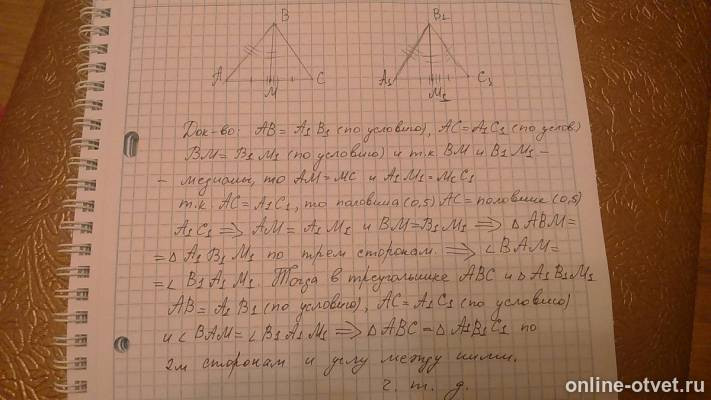 B B1
A M C A1 M1 C1
Док-во: AB = A1B1 (по условию), AC = A1C1 (по услов)
BM = B1M1 (по условию) и т.к. BM и B1M1 –
– медианы, то AM = MC и A1M1 = M1C1
т.к AC = A1C1, то половина (0,5) AC = половине (0,5)
A1C1 ⇒ AM = A1M1 и BM = B1M1 ⇒ △ ABM =
= △ A1B1M1 по трем сторонам. ⇒ ∠BAM =
= ∠ B1A1M1. Тогда в треугольнике ABC и △ A1B1M1
AB = A1B1 (по условию), AC = A1C1 (по условию)
и ∠ BAM = ∠ B1A1M1 ⇒ △ ABC = △ A1B1C1 по
2м сторонам и углу между ними.
ч. т. д.
online-otvet.ru